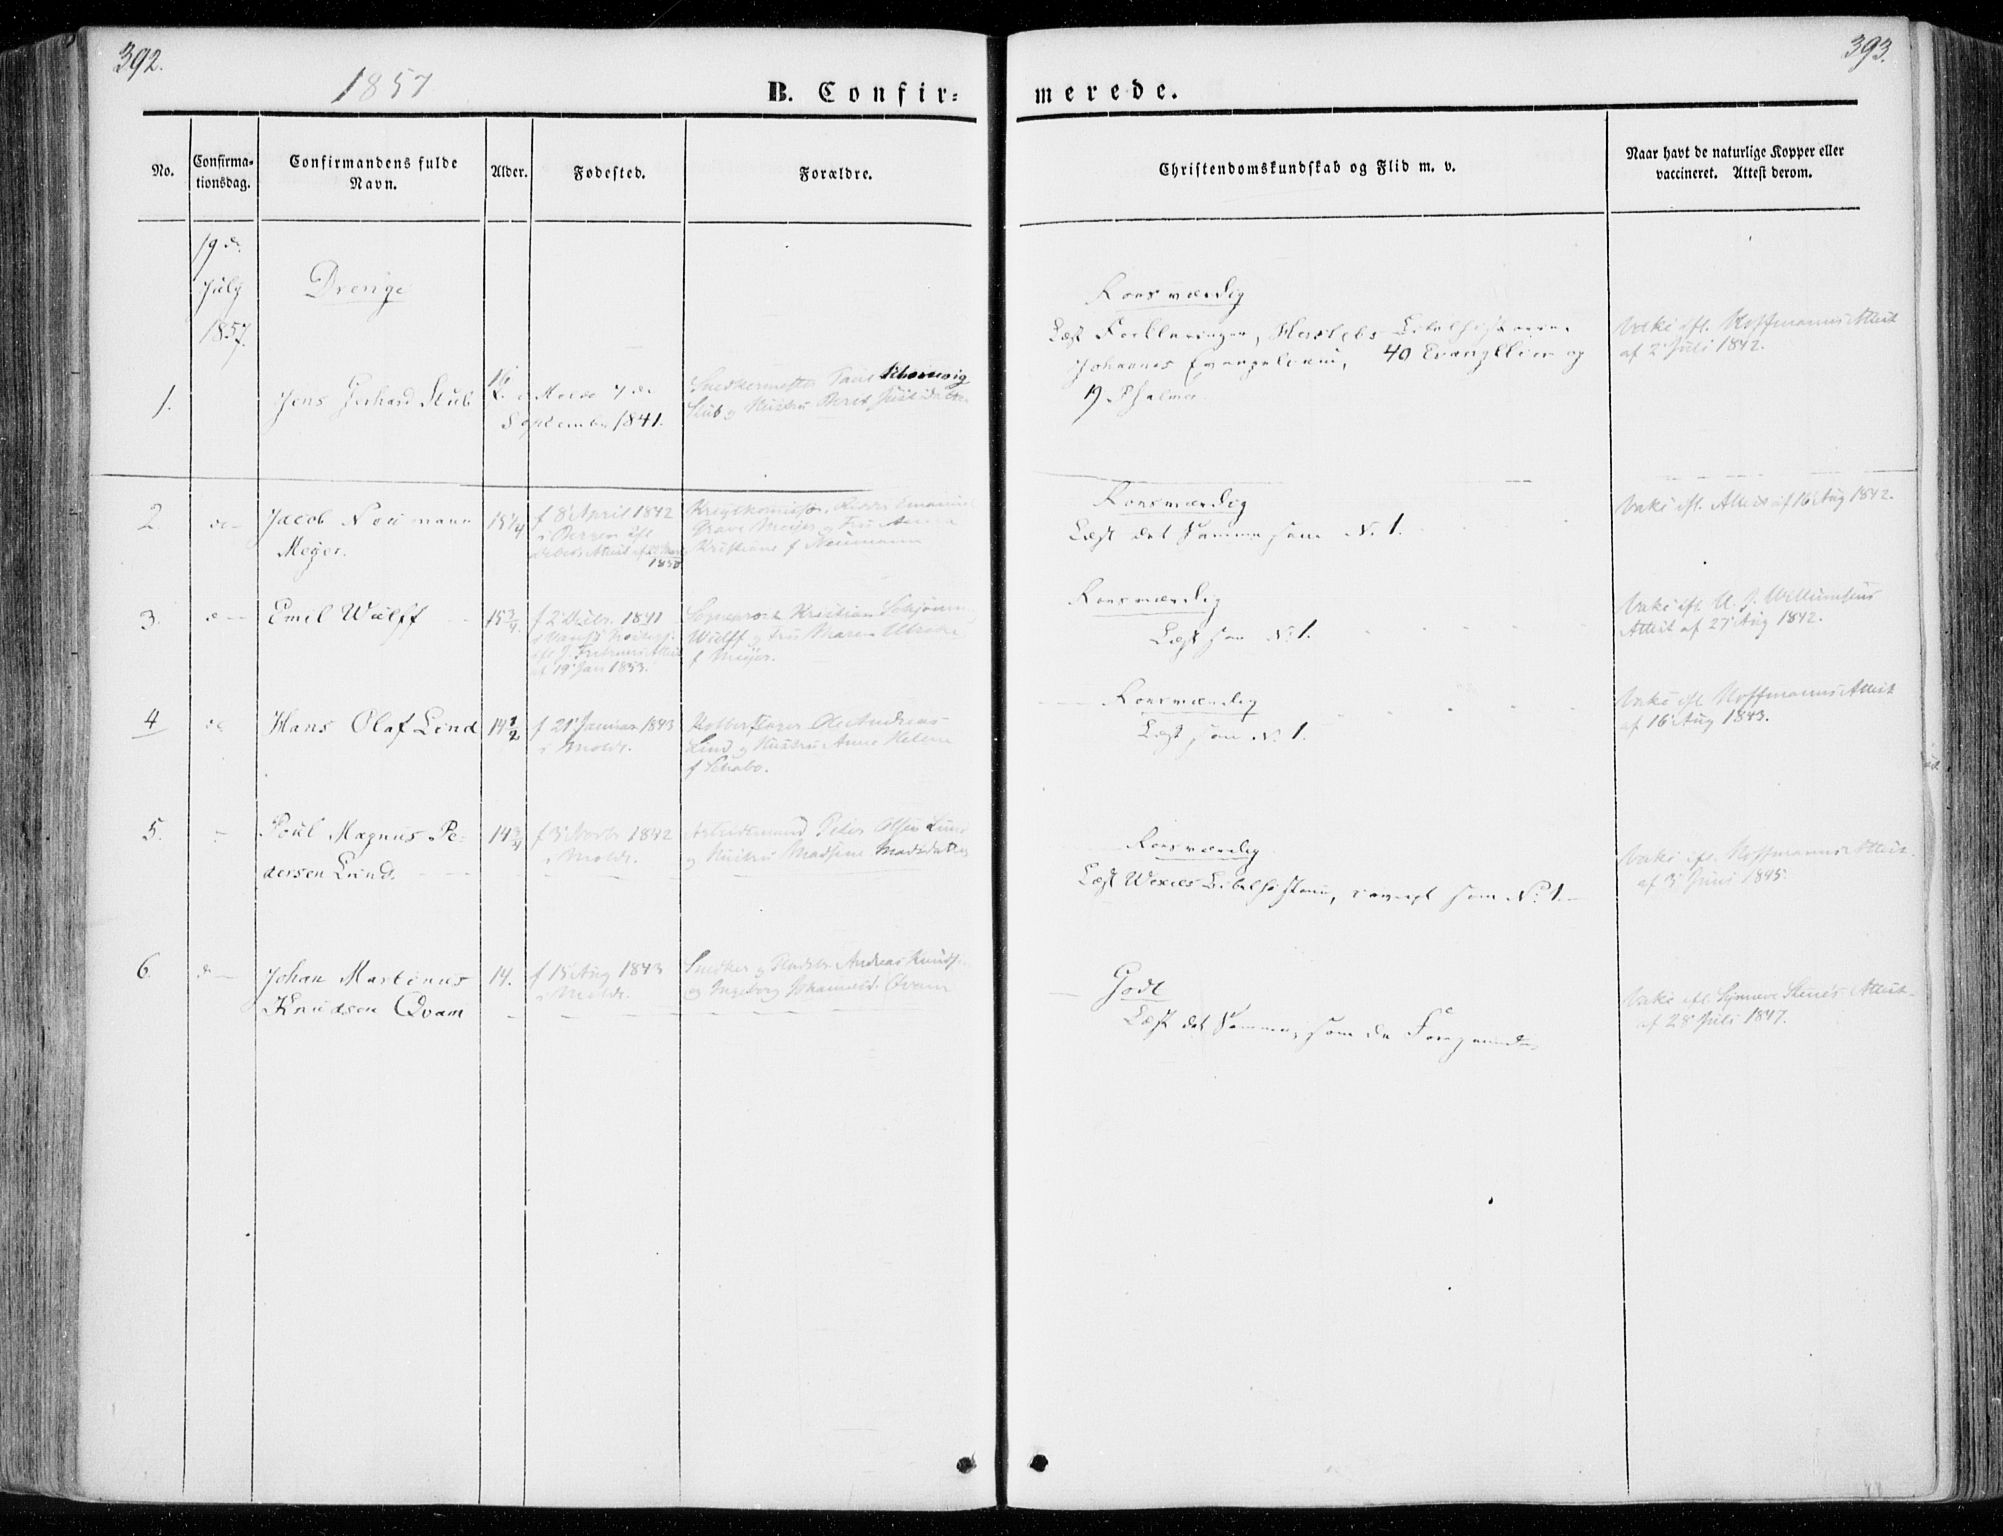 392.
1857
B. Confir-
merede.
393.
No.
Confirma-
tionsdag.
Confirmandens fulde
Navn.
Alder.
Fødested.
Forældre.
Christendomskundskab og Flid m. v.
Naar havt de naturlige Kopper eller
vaccineret. Attest derom.
19de
July
1857.
Drenge
1.
Jens Gerhard Stub
16
Molde 7de
September 1841.
Snedkermester
Stub og Hustru Beret
Roesværdig
Læst Forklaringen, Herslebs Bibelhistorie,
Johannes Evangelium, 40 Evangelier og
19 Psalmer.
Vakc. efl. Hoffmanns Attest
af 2 Juli 1842.
2
do
Jacob Neumann
Meyer.
15 1/4
f 8 April 1842
i Bergen efl
Attest af
1850
Grave Meijer og Fru Anna
Kristiane f Neumann
Roesværdig
Læst det Samme som No 1.
Vakc. efl. Attest af 16 Aug 1842.
3.
do
Emil Wulff
15 3/4
f 2 Decbr. 1841
Attest
af 19 Jan 1853.
Sogneprest Kristian
Wulff og Fru Maren Ulrikke
f Meijer.
Roesværdig
Læst som No 1.
Vakc. efl. Willumsens
Attest af 27 Aug 1842.
4
do
Hans Olaf Lind
14 1/2
f 21 Januar 1843
i Molde.
Ole Andreas
Lind og Hustru Anne Helene
f Schabo.
Roesværdig
Læst som No 1.
Vakc. efl. Hoffmanns Attest
af 16 Aug 1843.
5.
Poul Magnus Pe-
dersen Lund.
14 3/4
f 3 Novbr 1842
i Molde.
Arbeidsmand Peder Olsen Lund
og Hustru Madsine Madsdatter
Roesværdig
Læst Wexels Bibelhistorie, iøvrigt som No 1.
Vakc. efl. Hoffmanns Attest
af 3 Juni 1845.
6.
do
Johan Martinus
Knudsen Qvam
14.
f 15 Aug 1843
i Molde.
Snedker og Andreas Knudsen
og Ingeborg Qvam
Godt
Læst det Samme, som de Foregaaende.
Vakc. efl. Synneve Stenes Attest
af 28 Juli 1847.